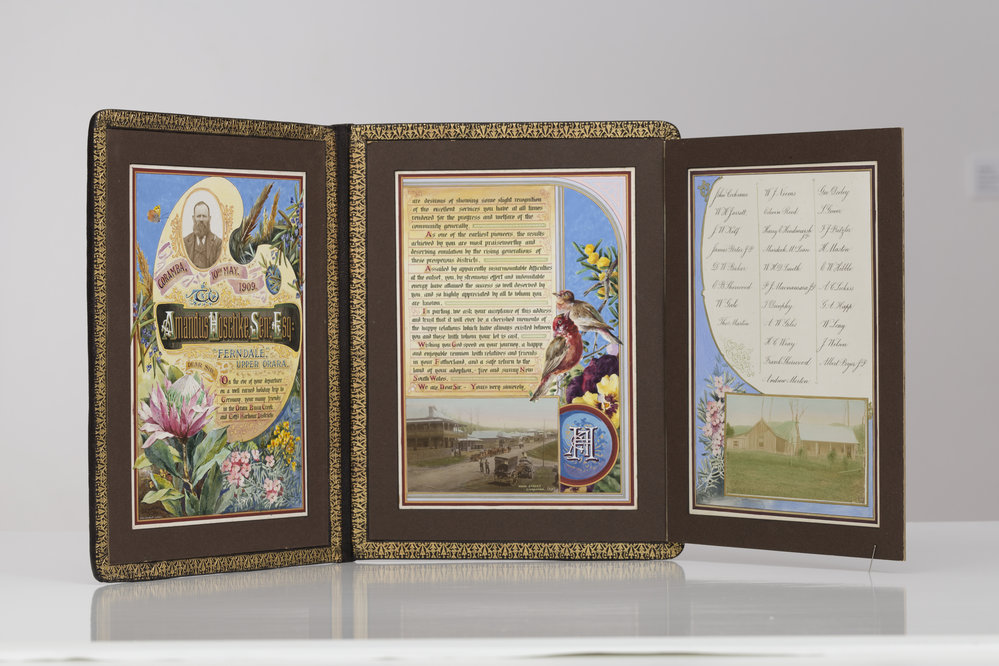 CORAMBA,
10TH MAY,
1909.
TO
Amandus Hoschke Senr. Esq:
"FERNDALE,"
UPPER ORARA.
DEAR SIR,
On the eve of your departure
on a well earned holiday trip to
Germany, your many friends
in the Orara, Bucca Creek
and Coffs Harbour Districts
are desirous of showing some slight recognition
of the excellent services you have at all times
rendered for the progress and welfare of the
community generally.
As one of the earliest pioneers, the results
achieved by you are most praiseworthy and
deserving emulation by the rising generations of
these prosperous districts.
Assailed by apparently insurmountable difficulties
at the outset, you by strenuous effort and indomitable
energy have attained the success so well deserved by
you, and so highly appreciated by all to whom you
are known.
In parting, we ask your acceptance of this address
and trust that it will ever be a cherished memento of
the happy relations which have always existed between
you and those with whom your lot is cast.
Wishing you God speed on your journey, a happy
and enjoyable reunion with relatives and friends
in your Fatherland, and a safe return to the
land of your adoption, - free and sunny New
South Wales,
We are Dear Sir, - Yours very sincerely,
H
MAIN STREET
John Cochrane
W. H. Jarrett
J. W. Hill
D. W. Baker
E. B. Sherwood
W. Gale
Thos. Martin
W. J. Nixons
Edwin Reid
W. H. D. Smith
J. Dunphy
A. W. Giles
H. C. Wray
Frank Sherwood
Andrew Morton
Geo. Doeley
H. Martin
G. A. Happ
W. Long
J. Nelson